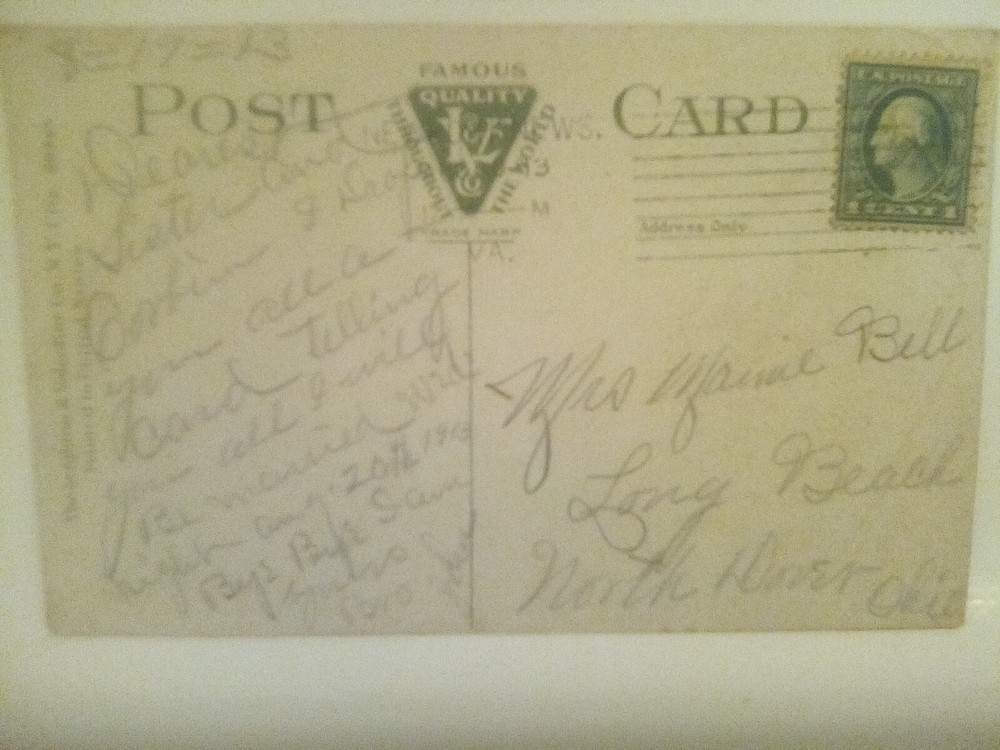 8=19=13
POST CARD
FAMOUS
QUALITY
THROUGHOUT THE WORLD
TRADE MARK
WS.
3
M
VA.
U.S. POSTAGE
1 CENT 1
Address Only
Dearest
Sister and
Cousin I drop
you all a
card telling
you all I will
Be married Wed.
night aug. 20th 1913
Bye Bye
Bro
Mrs Mamie Bell
Long Beach
North Dover
Ohio